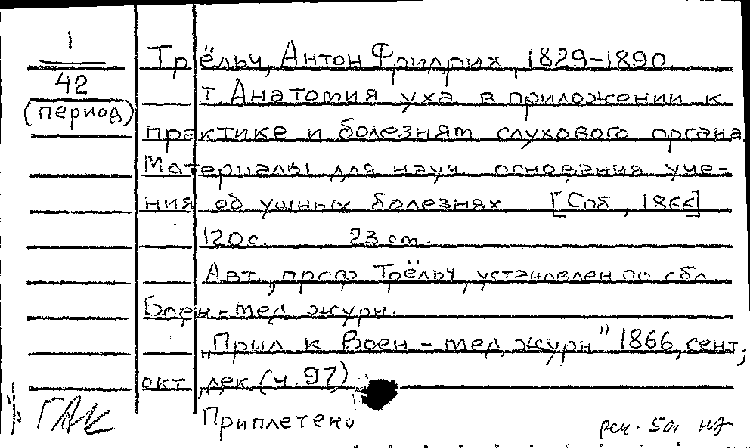 1
42
(период)
Трёльч, Антон Фридрих, 1829-1890.
т. Анатомия уха в приложении к
практике и болезням слухового органа.
Материалы для науч. основания уче-
ния об ушных болезнях. [Спб, 1866]
120 с. 23 см.
Авт., проф. Трёльч, установлен по обл.
Воен-мед. журн.
"Прил. к Воен-мед. журн" 1866, сент.,
окт., дек. (ч. 97)
ГАК
Приплетено